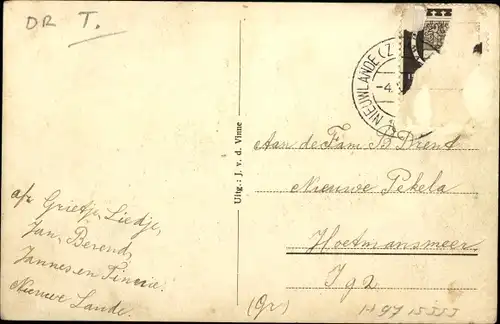 DR T.
NIEUWLANDE (Z
-4.
Uitg.: J. v. d. Vinne
Aan de Fam B Drent
Nieuwe Pekela
Hoetmansmeer
(Gr)
a/z Grietje, Liedje,
Jan, Berend,
Jannes en Tinere.
Nieuwe Lande.